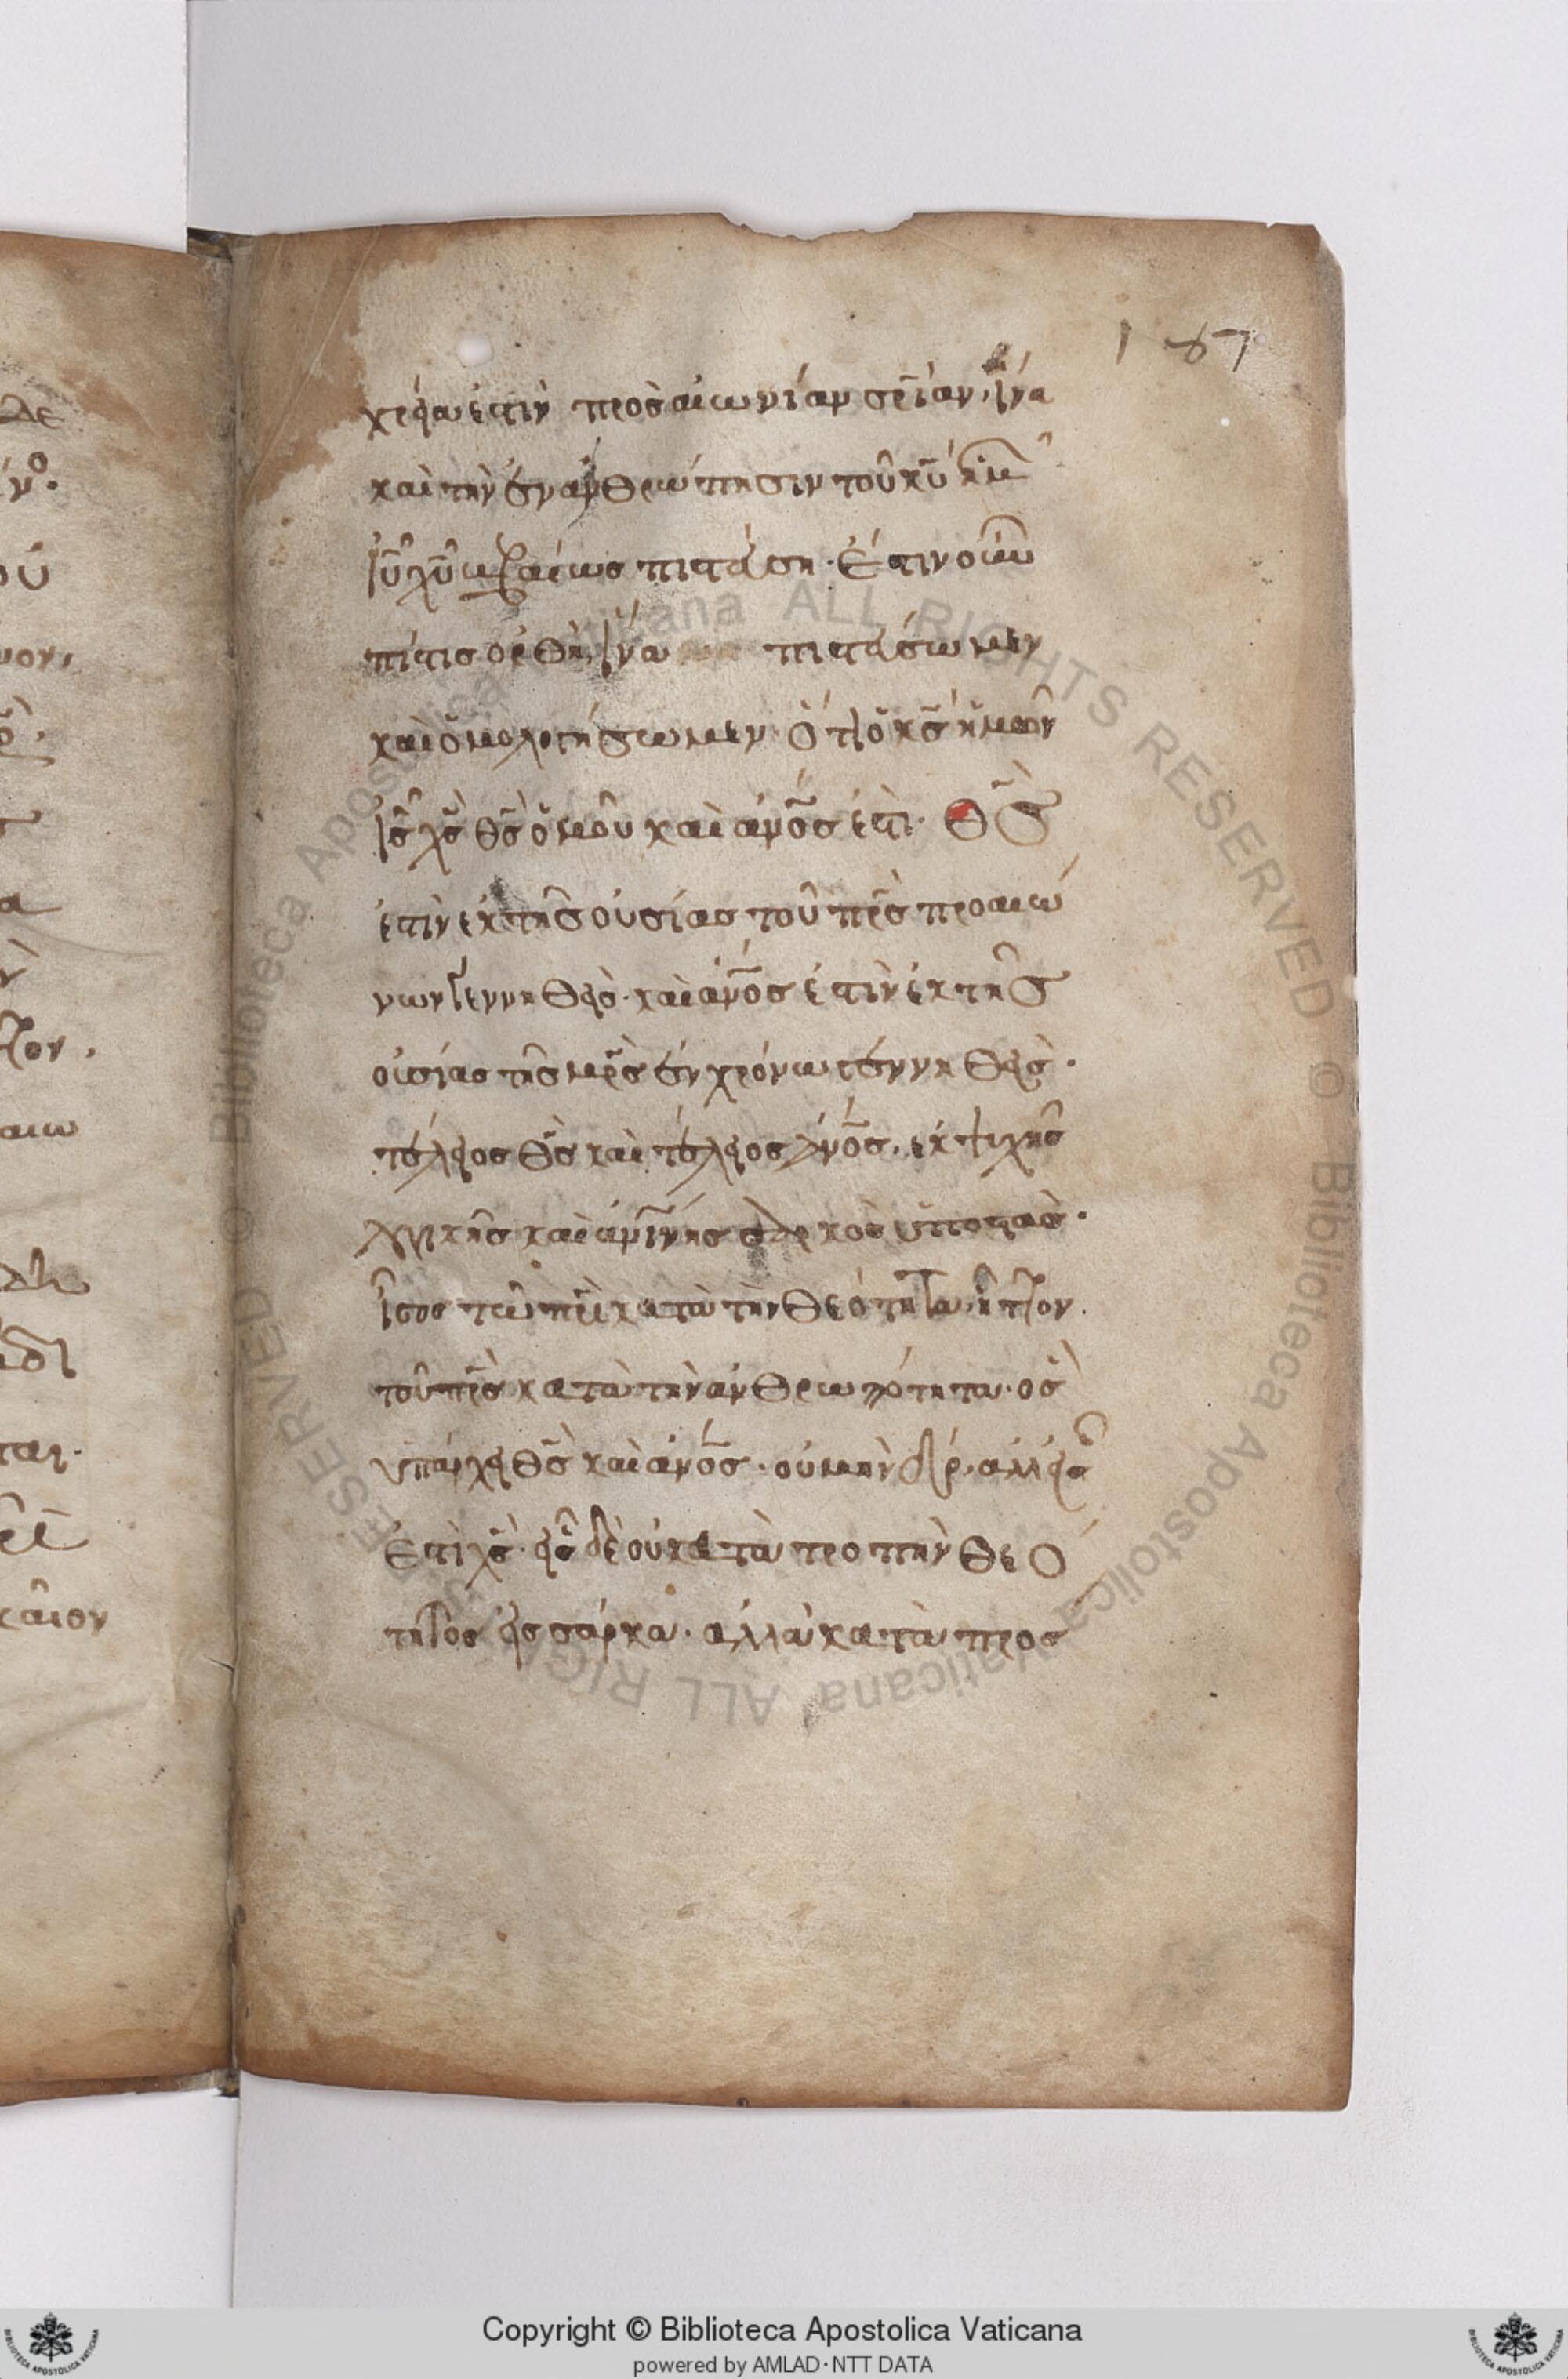 λε
ύν°.
ού
μον,
α
ζον,
αιω
ται.
καῖον
187
χρεία ἐστὶν πρὸς αἰωνίαν σρ̅ίαν, ἵνα
καὶ τὴν ἐνανθρώπησιν τοῦ κ̅υ̅ ἡμ
ι̅υ̅ χ̅υ̅ βεαίως πιστεύση· ἔστιν οὖν
πίστις ὀρθὴ, ἵνα πιστεύσωμεν
καὶ ὁμολογήσωμεν· ὅτι ὁ κ̅ς̅ ἡμῶν
ι̅ς̅ χ̅ς̅ θ̅ς̅ ὁμοῦ καὶ α̅ν̅ο̅ς̅ ἐστι· θ̅ς̅
ἐστὶν ἐκ τῆς οὐσίας τοῦ π̅ρ̅ς̅ προ αἰώ
νων γεννηθείς· καὶ α̅ν̅ο̅ς̅ ἐστὶν ἐκ τῆς
οὐσίας τῆς μ̅ρ̅ς̅ ἐν χρόνω γεννηθείς·
τέλειος θ̅ς̅ καὶ τέλειος α̅ν̅ο̅ς̅, ἐκ ψυχῆς
λογικῆς καὶ α̅ν̅ίνης σαρκὸς ὑποστὰς·
ἶσος τῶ π̅ρ̅ι̅ κατὰ τὴν θεότητα, ἥττον
τοῦ π̅ρ̅ς̅ κατὰ τὴν ἀνθρωπότητα· ὃς
ὑπάρχει θ̅ς̅ καὶ α̅ν̅ο̅ς̅· οὐ μὴν δύο, ἀλλ' εἷς
ἐστὶ χ̅ς̅· εἷς δὲ οὐ κατὰ τροπὴν θεό
τητος εἰς σάρκα· ἀλλὰ κατὰ προσ
Copyright © Biblioteca Apostolica Vaticana
powered by AMLAD·NTT DATA